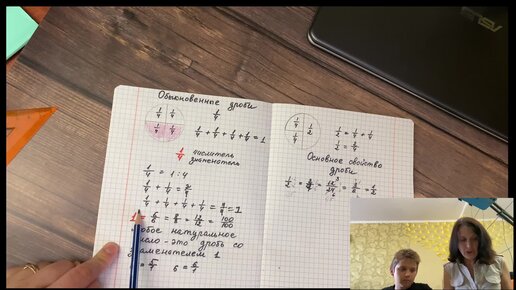 Обыкновенные дроби
1/4 1/4
1/4 1/4
1/4
1/4 + 1/4 + 1/4 + 1/4 = 1
1/4 числитель
знаменатель
1/4 = 1:4
1/4 + 1/4 = 2/4
1/4 + 1/4 + 1/4 + 1/4 = 4/4 = 1
= 6/6 = 8/8 = 12/12 = 100/100
натуральное
это дробь со
знаменателем 1
= 5/1 6 = 6/1
1/4 1/2
1/4
1/2 = 1/4 + 1/4
1/2 = 2/4
Основное свойство
дроби
1/2 = 2/4 = 12/24 = 3/6 = 1/2
ASUS